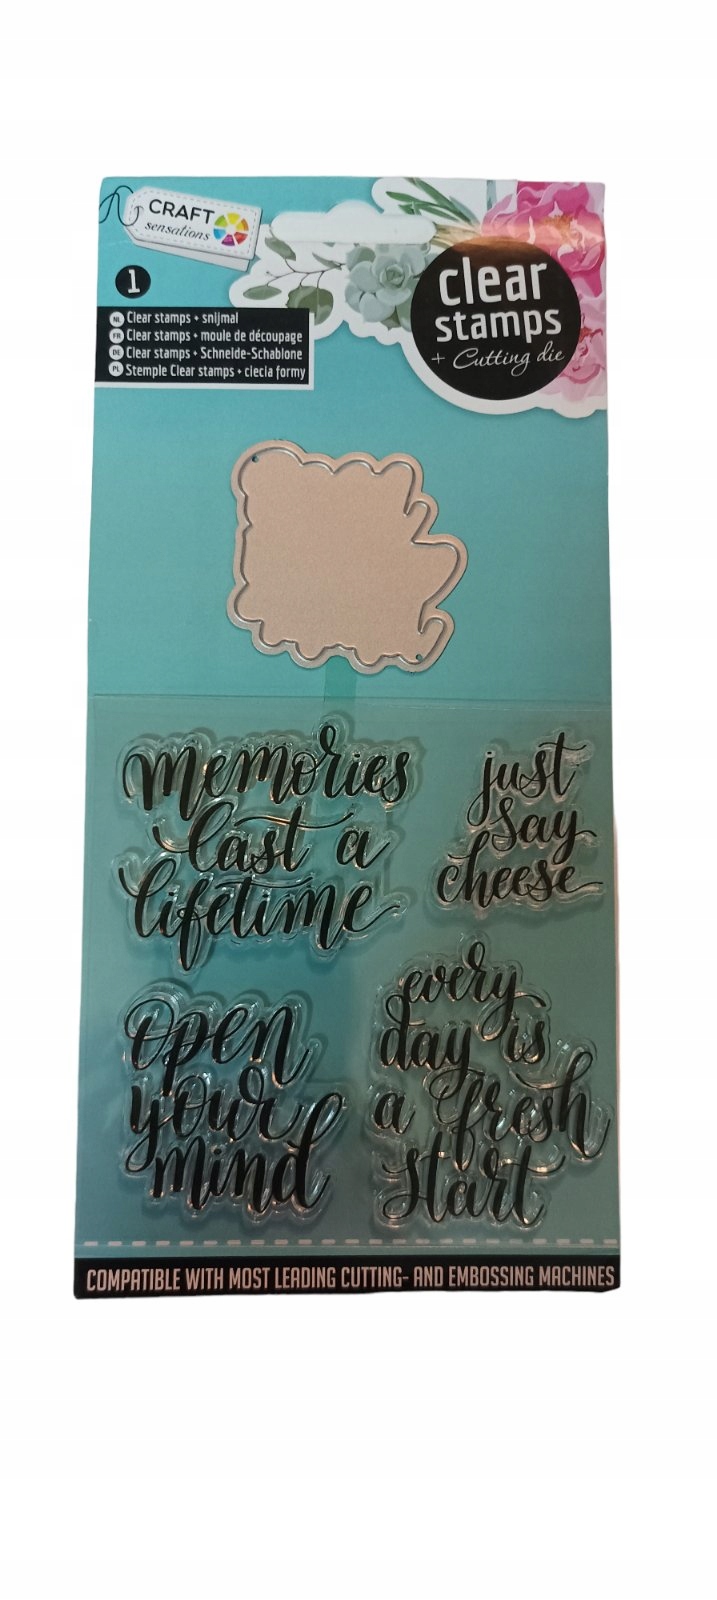 CRAFT
sensations
clear
stamps
+ Cutting die
1
NL Clear stamps + snijmal
FR Clear stamps + moule de découpage
DE Clear stamps + Schneide-Schablone
PL Stemple Clear stamps + ciecia formy
memories
last a
lifetime
just
say
cheese
open
your
mind
every
day is
a fresh
start
COMPATIBLE WITH MOST LEADING CUTTING- AND EMBOSSING MACHINES